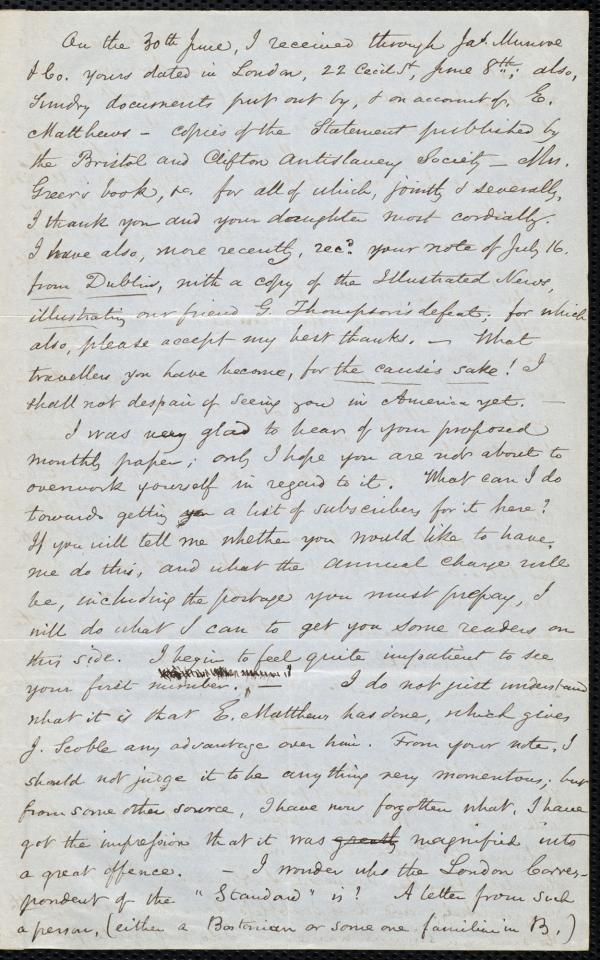 On the 30th June, I received through Jas. Munroe
& Co. yours dated in London, 22 Cecil St, June 8th; also,
Sundry documents put out by, & on account of, E.
Matthews – copies of the Statement published by
the Bristol and Clifton Antislavery Society – Mrs.
Greer's book, &c. for all of which, jointly & severally,
I thank you and your daughter most cordially.
I have also, more recently, recd. your note of July 16.
from Dublin, with a copy of the Illustrated News,
illustrating our friend G. Thompson's defeat; for which
also, please accept my best thanks. – What
travellers you have become, for the cause's sake! I
shall not despair of seeing you in America yet. –
I was very glad to hear of your proposed
monthly paper; only I hope you are not about to
overwork yourself in regard to it. What can I do
towards getting a list of subscribers for it here?
If you will tell me whether you would like to have
me do this, and what the annual charge will
be, including the postage you must prepay, I
will do what I can to get you some readers on
this side. I begin to feel quite impatient to see
your first number. – I do not just understand
what it is that E. Matthews has done, which gives
J. Scoble any advantage over him. From your note, I
should not judge it to be any thing very momentous; but
from some other source, I have now forgotten what, I have
got the impression that it was greatly magnified into
a great offence. – I wonder who the London Corres-
pondent of the "Standard" is? A letter from such
a person, (either a Bostonian or some one familiar in B.)